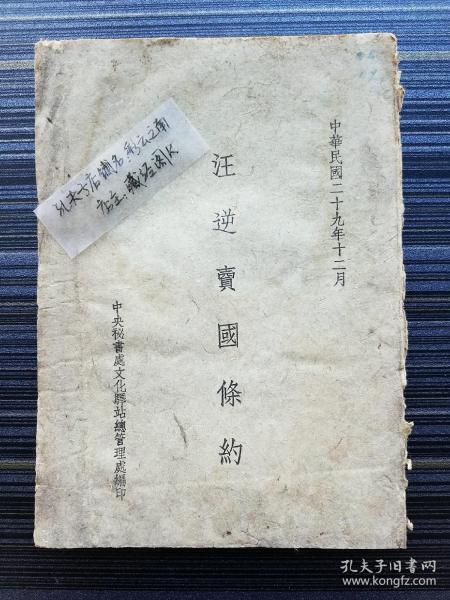 中華民國二十九年十二月
汪逆賣國條約
中央秘書處文化驛站總管理處編印
孔夫子旧书网
www.kongfz.com